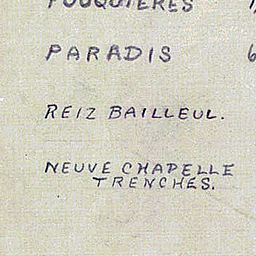 FOUQUIERES
PARADIS 6
REIZ BAILLEUL.
NEUVE CHAPELLE
TRENCHES.